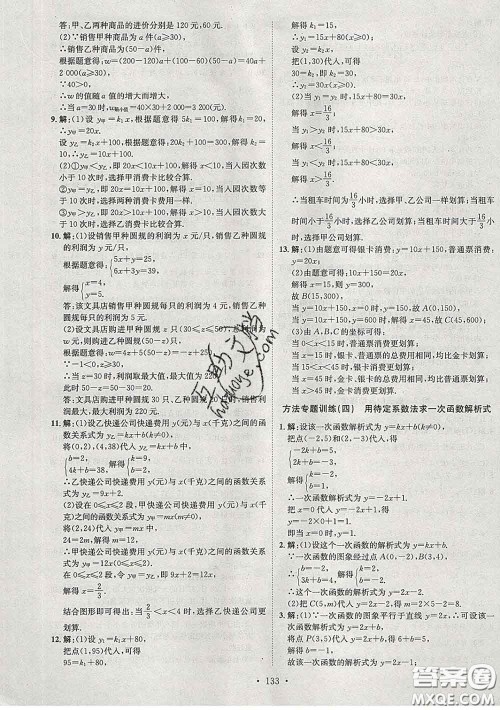 答:甲、乙两种商品的进价分别是120元,60元.
(2)∵销售甲种商品为a件(a≥30),
∴销售乙种商品为(50-a)件.
根据题意得:w=(200-120)a+(100-60)(50-a)=40a+
2 000(a≥30),
∵40>0,
∴w的值随a值的增大而增大,
∴当a=30时,w最小值=40×30+2 000=3 200(元).
9.解:(1)设y甲=k₁x,根据题意得5k₁=100,解得k₁=20,
∴y甲=20x.
设y乙=k₂x+100,根据题意得:20k₂+100=300,解得k₂
=10,∴y乙=10x+100.
(2)①y甲<y乙,即20x<10x+100,解得x<10,当入园次数
小于10次时,选择甲消费卡比较合算.
②y甲=y乙,即20x=10x+100,解得x=10,当入园次数等
于10次时,选择两种消费卡费用一样.
③y甲>y乙,即20x>10x+100,解得x>10,当入园次数大
于10次时,选择乙消费卡比较合算.
10.解:(1)设销售甲种圆规的利润为x元/只,销售乙种圆规
的利润为y元/只,
根据题意得:{5x+y=25,
6x+3y=39,
解得{x=4,
y=5.
答:该文具店销售甲种圆规每只的利润为4元,销售乙种
圆规每只的利润为5元.
(2)设文具店购进甲种圆规z只(30≤z≤50),销售利润
为w元,则购进乙种圆规(50-z)只,
根据题意得:w=4z+5(50-z)=-z+250.
∵-1<0,
∴当z=30时,利润取最大值,最大值为220,
此时50-z=50-30=20.
答:文具店购进甲种圆规30只,乙种圆规20只时,销售
利润最大,最大利润为220元.
11.解:(1)设乙快递公司快递费用y乙(元)与x(千克)之间的
函数关系式为y乙=kx+b,把(0,2)和(4,38)代入,得
{b=2,
4k+b=38,解得{b=2,
k=9.
∴乙快递公司快递费用y乙(元)与x(千克)之间的函数
关系式为y乙=9x+2.
(2)设在0≤x≤2段,甲快递公司快递费用y甲(元)与x
(千克)之间的函数关系式为y甲=mx(m≠0).
将(2,24)代入y甲=mx中,
24=2m,解得m=12.
∴甲快递公司快递费用y甲(元)与x(千克)之间的函数
关系式为y甲=12x(0≤x≤2).
在0≤x≤2段,令y甲=y乙,即12x=9x+2,
解得x=2/3.
结合图形即可得出,当2/3<x<4时,选择乙快递公司更
划算.
12.解:(1)设y₁=k₁x+80,
把点(1,95)代入,可得
95=k₁+80,
解得k₁=15,
∴y₁=15x+80(x≥0);
设y₂=k₂x,
把(1,30)代入,可得30=k₂,即k₂=30,
∴y₂=30x(x≥0).
(2)当y₁=y₂时,15x+80=30x,
解得x=16/3;
当y₁>y₂时,15x+80>30x,
解得x<16/3;
当y₁<y₂时,15x+80<30x,
解得x>16/3.
∴当租车时间为16/3小时,选择甲、乙公司一样划算;当租车
时间小于16/3小时,选择乙公司划算;当租车时间大于16/3小
时,选择甲公司划算.
13.解:(1)由题意可得:银卡消费:y=10x+150,普通票消费:
y=20x.
(2)由题意可得:10x+150=20x.
解得x=15,则y=300.
故B(15,300).
当y=10x+150,x=0时,y=150,故A(0,150).
当y=10x+150=600时,解得x=45,则y=600.
故C(45,600).
(3)由A,B,C的坐标可得:
当0<x<15时,普通消费更划算;
当x=15时,银卡、普通票的总费用相同,均比金卡划算;
当15<x<45时,银卡消费更划算;
当x=45时,金卡、银卡的总费用相同,均比普通票划算;
当x>45时,金卡消费更划算.
方法专题训练(四) 用待定系数法求一次函数解析式
1.解:设一次函数解析式为y=kx+b,
把点(-2,5),(2,-3)代入,得
{-2k+b=5,
2k+b=-3,
解得{k=-2,
b=1.
∴一次函数解析式为y=-2x+1.
2.解:(1)设这个一次函数的解析式为y=kx+b.
∵一次函数的图象经过点A(0,-2),点B(1,0),
∴{b=-2,
k+b=0,解得{k=2,
b=-2.
∴这个一次函数的解析式为y=2x-2.
3.解:(1)∵一次函数的图象平行于直线y=-2x,可设该一
次函数解析式为y=-2x+b.
将点P(4,0)代入得:-8+b=0,解得b=8,
故一次函数解析式为y=-2x+8.
· 133 ·
互助文档
huzhuwang.com
答案圈
MXQE.COM